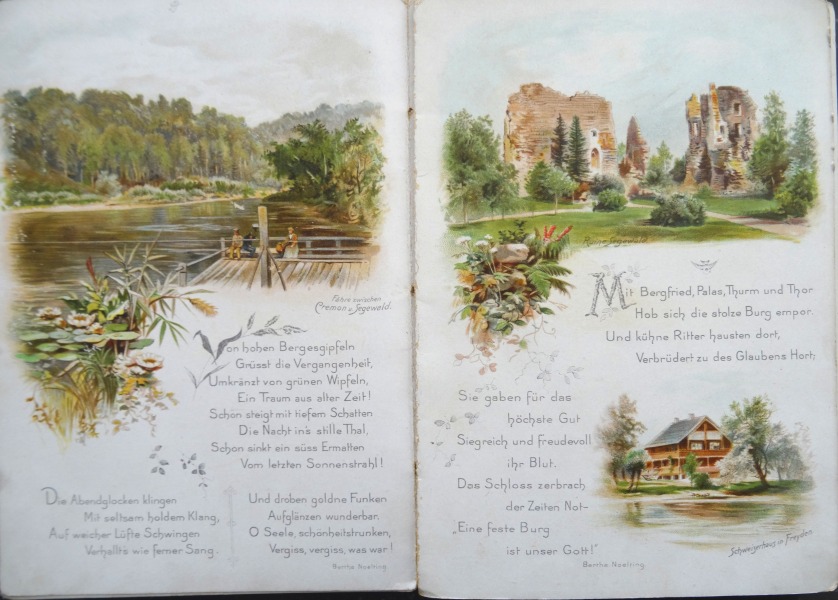 Fähre zwischen
Cremon u. Segewald.
Von hohen Bergesgipfeln
Grüsst die Vergangenheit,
Umkränzt von grünen Wipfeln,
Ein Traum aus alter Zeit!
Schon steigt mit tiefem Schatten
Die Nacht in's stille Thal,
Schon sinkt ein süss Ermatten
Vom letzten Sonnenstrahl!
Die Abendglocken klingen
Mit seltsam holdem Klang,
Auf weicher Lüfte Schwingen
Verhallt's wie ferner Sang.
Und droben goldne Funken
Aufglänzen wunderbar.
O Seele, schönheitstrunken,
Vergiss, vergiss, was war!
Bertha Noelting
Ruine Segewald.
Mit Bergfried, Palas, Thurm und Thor
Hob sich die stolze Burg empor.
Und kühne Ritter hausten dort,
Verbrüdert zu des Glaubens Hort;
Sie gaben für das
höchste Gut
Siegreich und freudevoll
ihr Blut.
Das Schloss zerbrach
der Zeiten Not-
„Eine feste Burg
ist unser Gott!"
Bertha Noelting.
Schweizerhaus in Treyden.